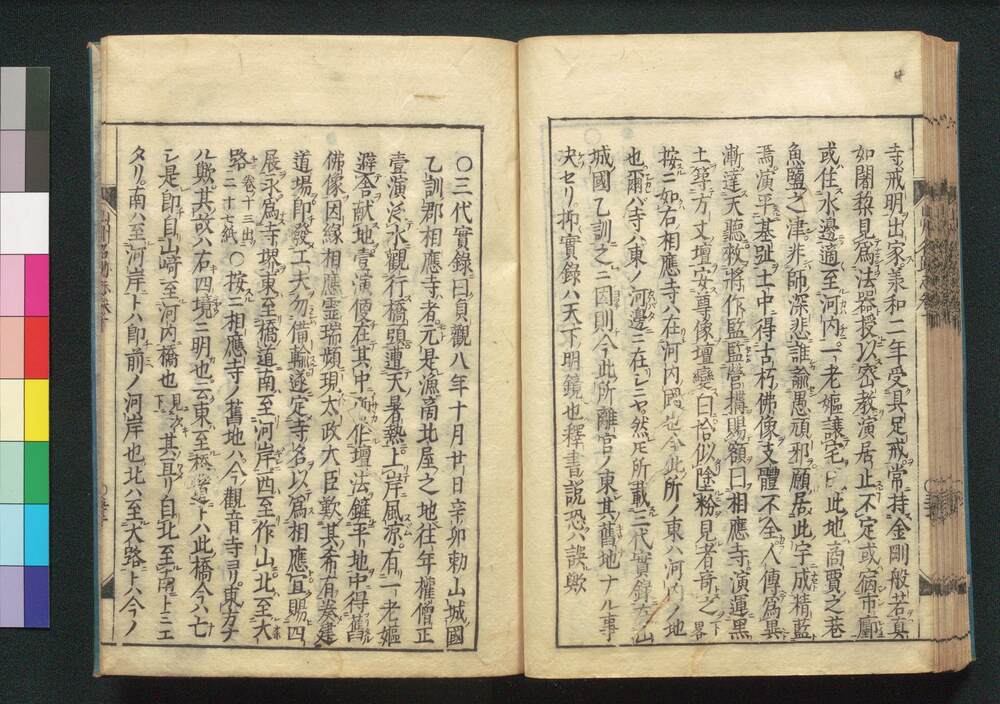 寺戒明出家羕和二年受具足戒常持金剛般若真
如闍梨見爲法器授以密教演居止不定或宿市廛
或住水邊適至河内一老嫗讓宅曰此地商賈之巷
魚鹽之津非師深悲誰諭愚頑邪願居此宇成精藍
焉演平基趾土中得古朽佛像支體不全人傳爲異
漸達天聽敕將作監監營搆賜額曰相應寺演運黒
土築方丈壇安尊像壇變曰恰似塗粉見者奇之下畧
按ニ如右相應寺ハ在河内國也今此所ノ東ハ河内ノ地
也爾ハ寺ハ東ノ河邊ニ在シニヤ然𪜈所載三代實録山
城國乙訓之ニ因則今此所離宮ノ東其舊地ナル事
决セリ抑實録ハ天下明鏡也釋書説恐ハ誤歟
〇三代實録曰貞觀八年十月廿日辛卯勅山城國
乙訓郡相應寺者元是漁商比屋之地往年權僧正
壹演泛水觀行橋頭遭天暑熱上岸風凉有一老嫗
避舎献地壹演便在其中作壇法鏟平地中得舊
佛像因縁相應霊瑞頻現太政大臣歎其希有奏建
道場即發工夫勿備輸遂定寺名以爲相應宜賜四
展永爲寺堺東至橋道南至河岸西至作山北至大
路卷十三出二十七紙〇按ニ相應寺ノ舊地ハ今觀音寺ヨリ東方ナ
ル歟其故ハ右四境ニ明也云東至橋道トハ此橋今ハ七
シ是即自山崎至河内橋也見下其耳リ自北至南ト三エ
タリ南ハ至河岸トハ即前ノ河岸也北ハ至大路トハ今ノ